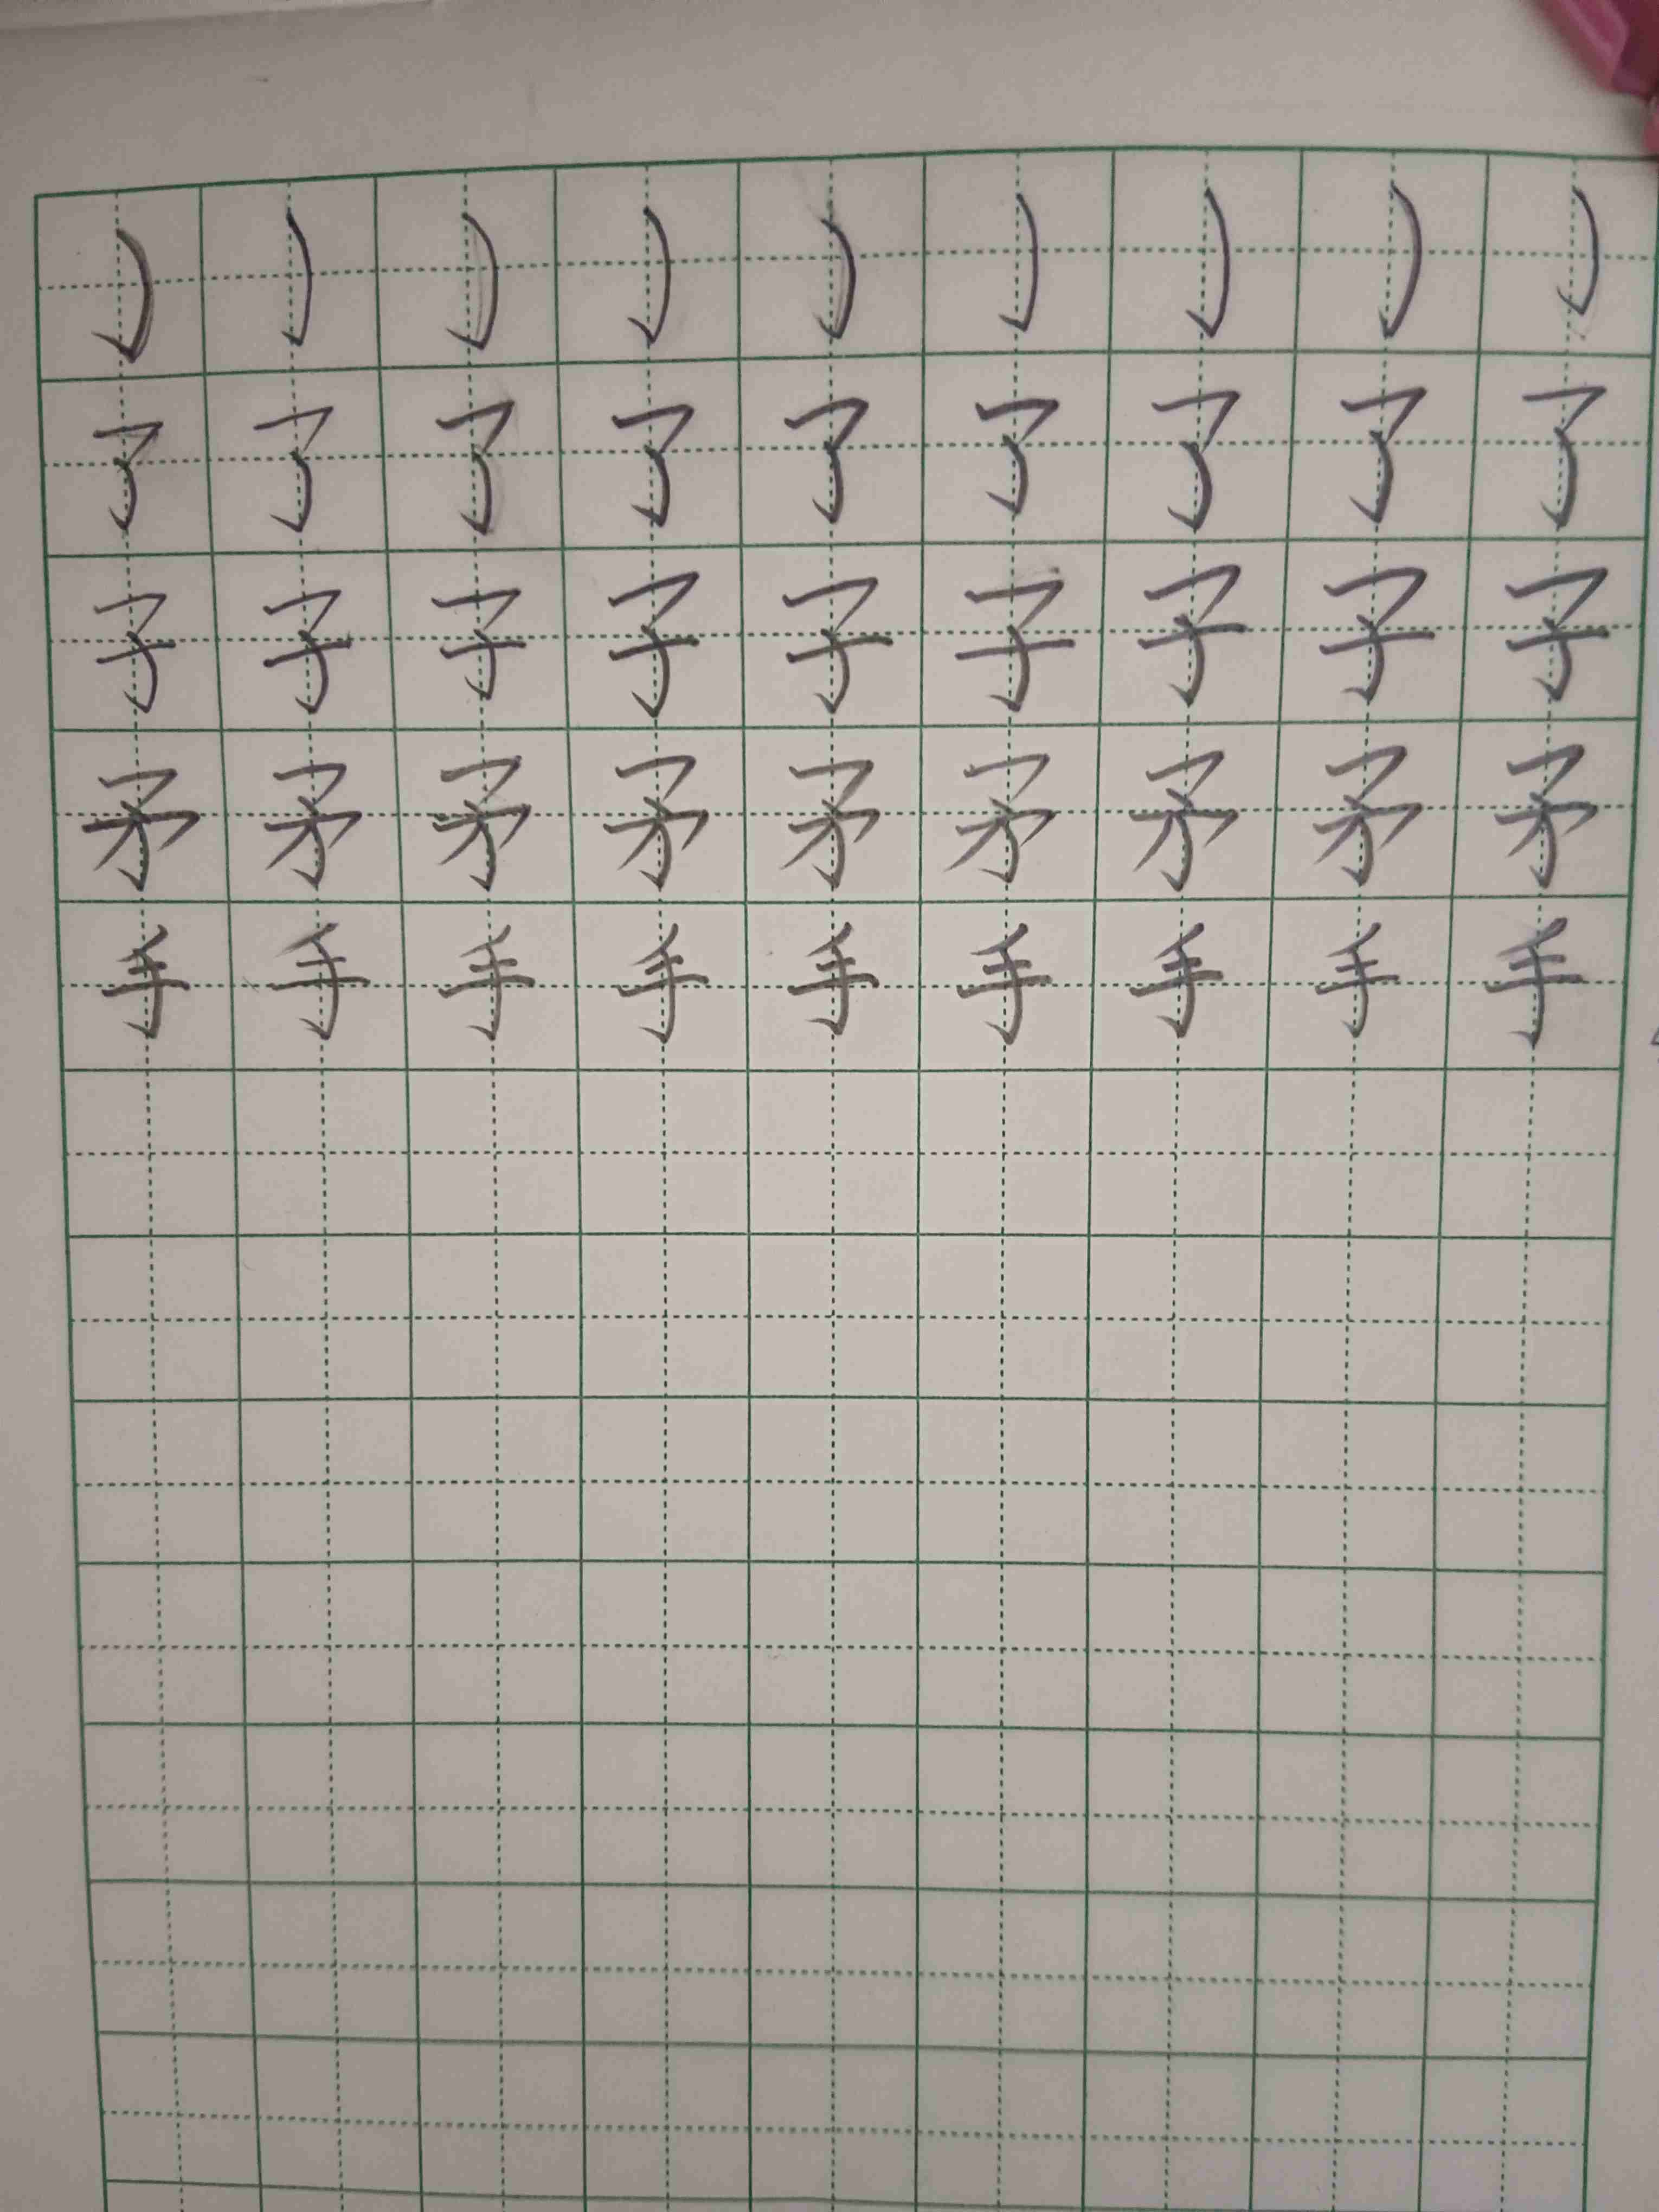 ㇁㇁㇁㇁㇁㇁㇁㇁㇁
了了了了了了了了了
子子子子子子子子子
矛矛矛矛矛矛矛矛矛
手手手手手手手手手